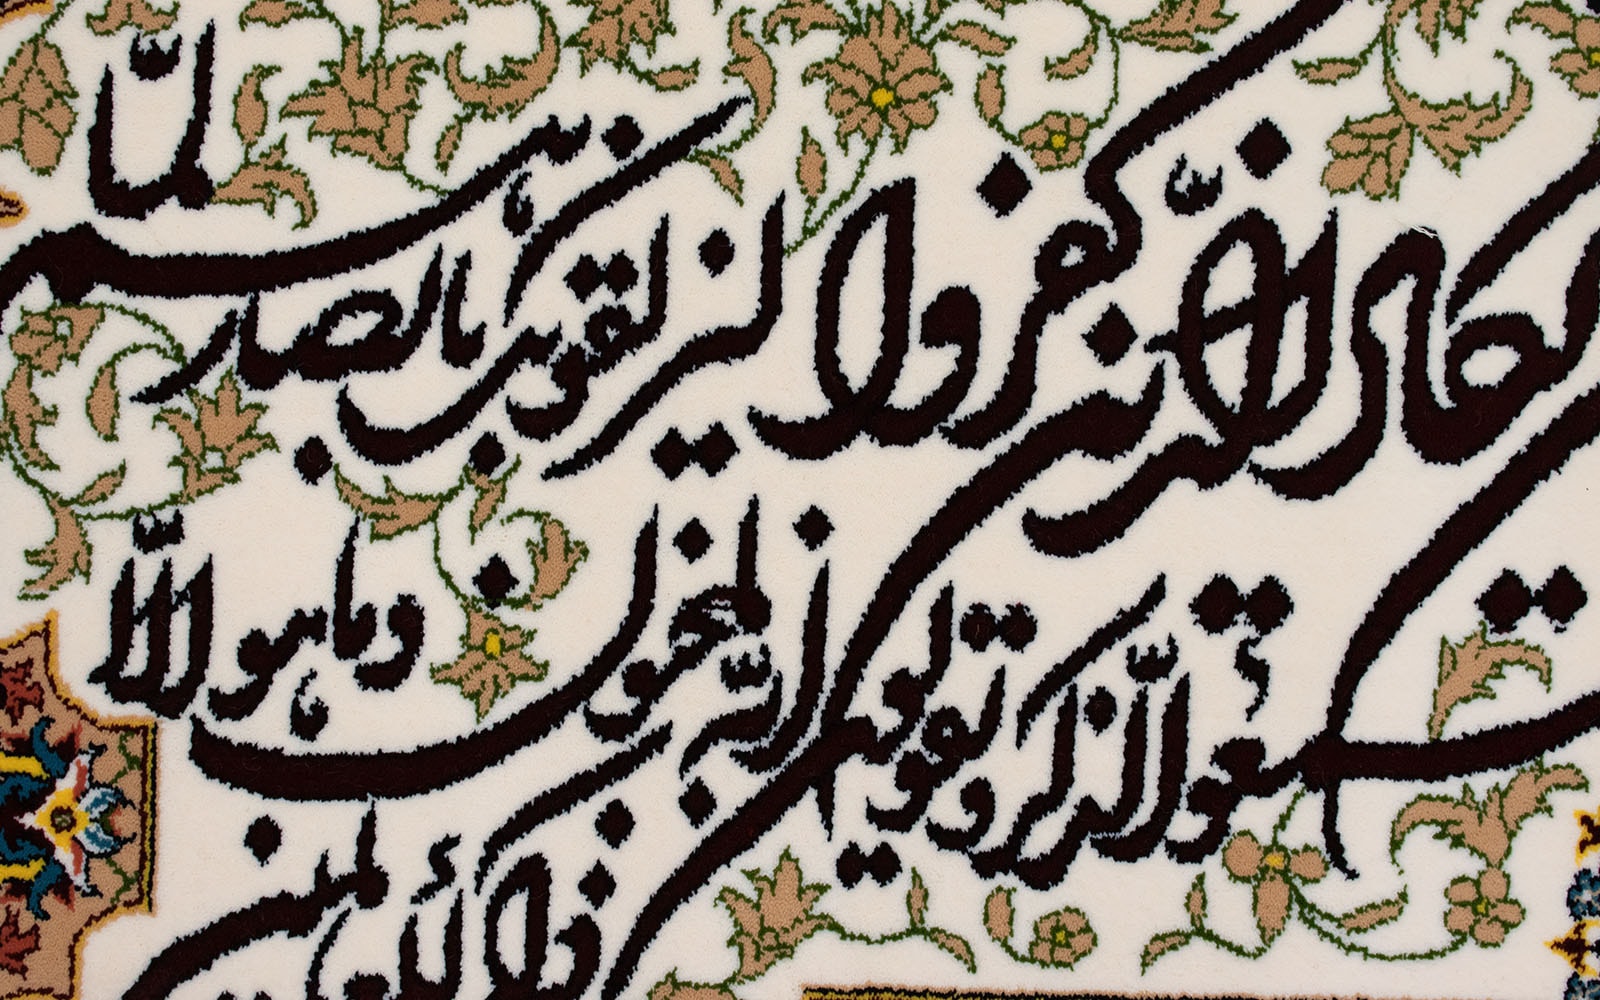 يكاد الّذين كفروا ليزلقونك بابصارهم لمّا
سمعوا الّذكر و يقولون انّه لمجنون و ما هو الّا
ذكر للعالمين